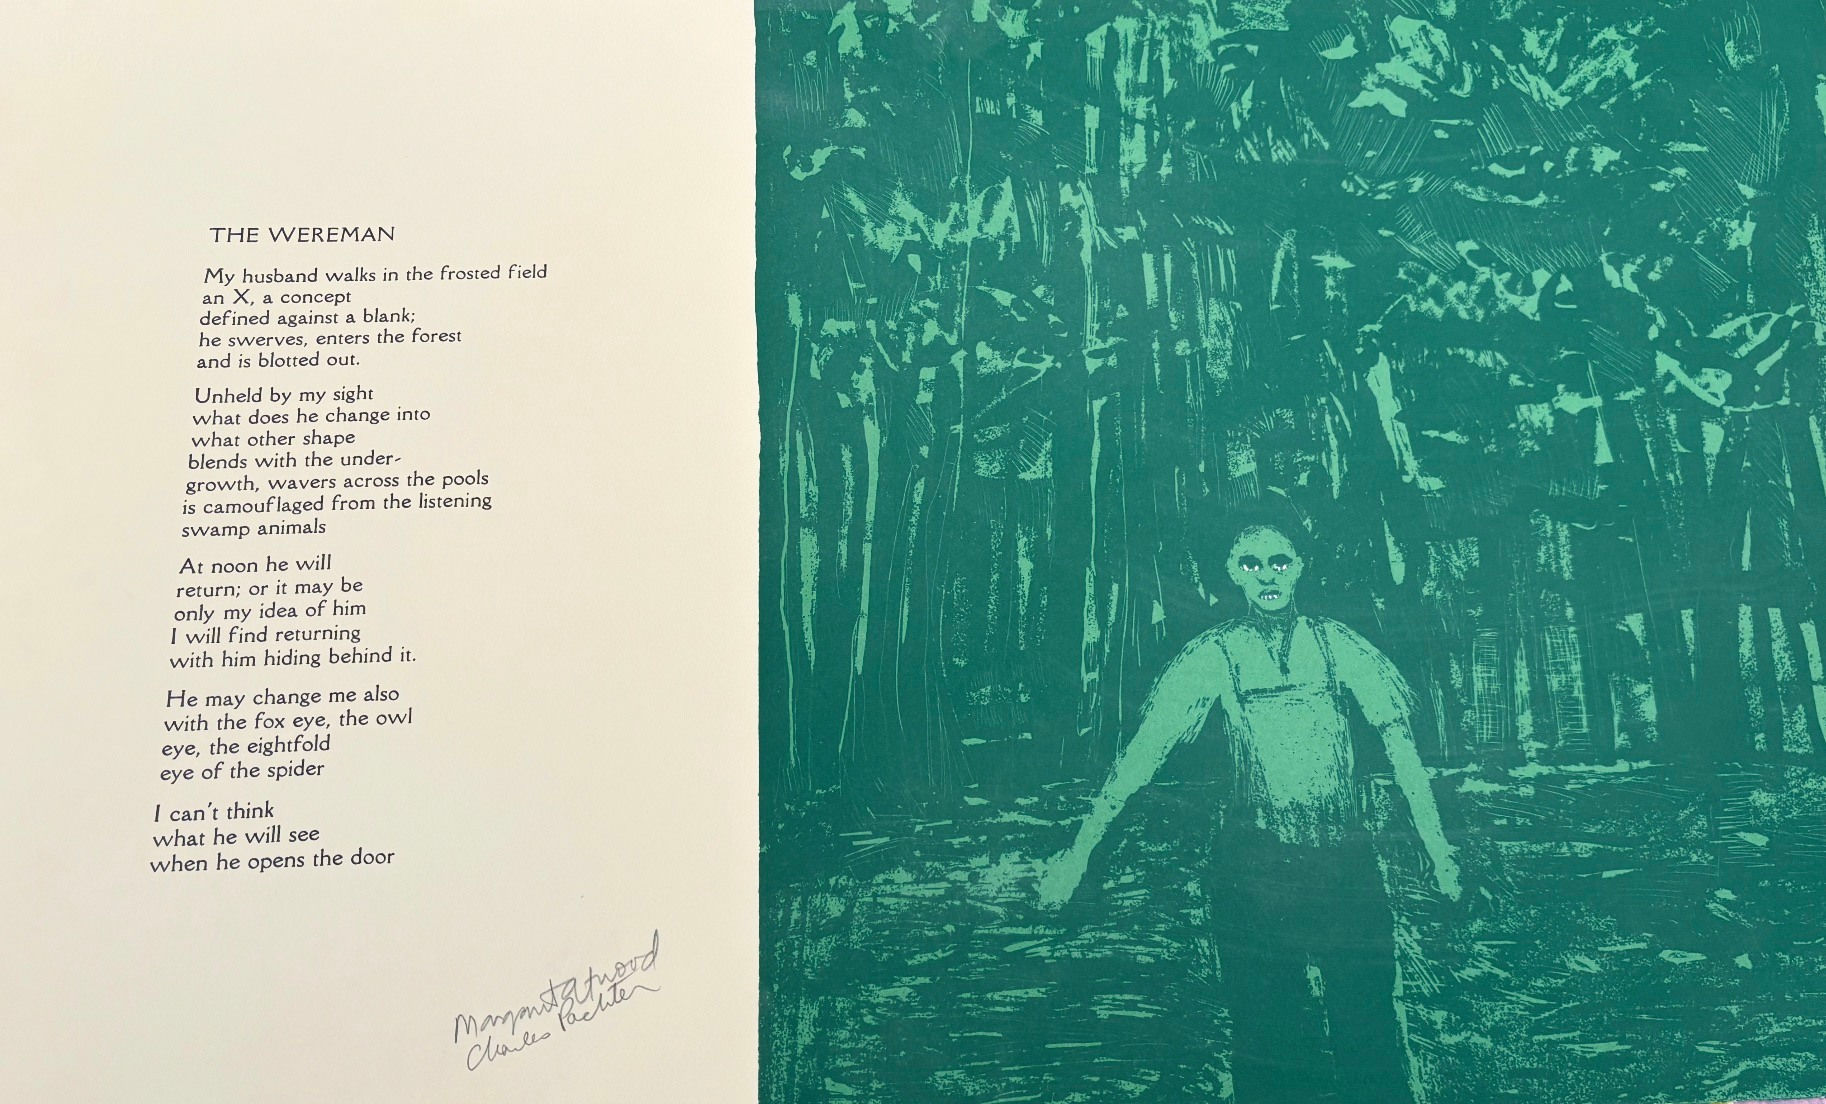 THE WEREMAN
My husband walks in the frosted field
an X, a concept
defined against a blank;
he swerves, enters the forest
and is blotted out.
Unheld by my sight
what does he change into
what other shape
blends with the under-
growth, wavers across the pools
is camouflaged from the listening
swamp animals
At noon he will
return; or it may be
only my idea of him
I will find returning
with him hiding behind it.
He may change me also
with the fox eye, the owl
eye, the eightfold
eye of the spider
I can't think
what he will see
when he opens the door
Margaret Atwood
Charles Pachter